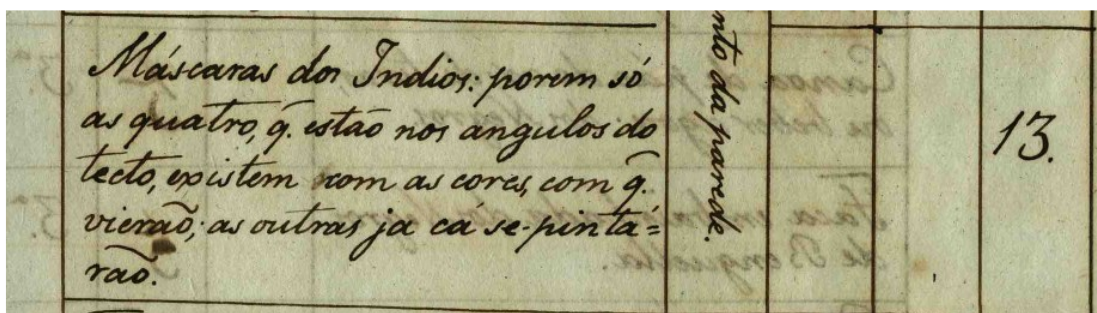 Máscaras dos Indios: porem só
as quatro, q̃. estão nos angulos do
tecto, existem com as cores, com q̃.
vierão; as outras ja cá se-pintá=
rão.
nto da parede.
13.